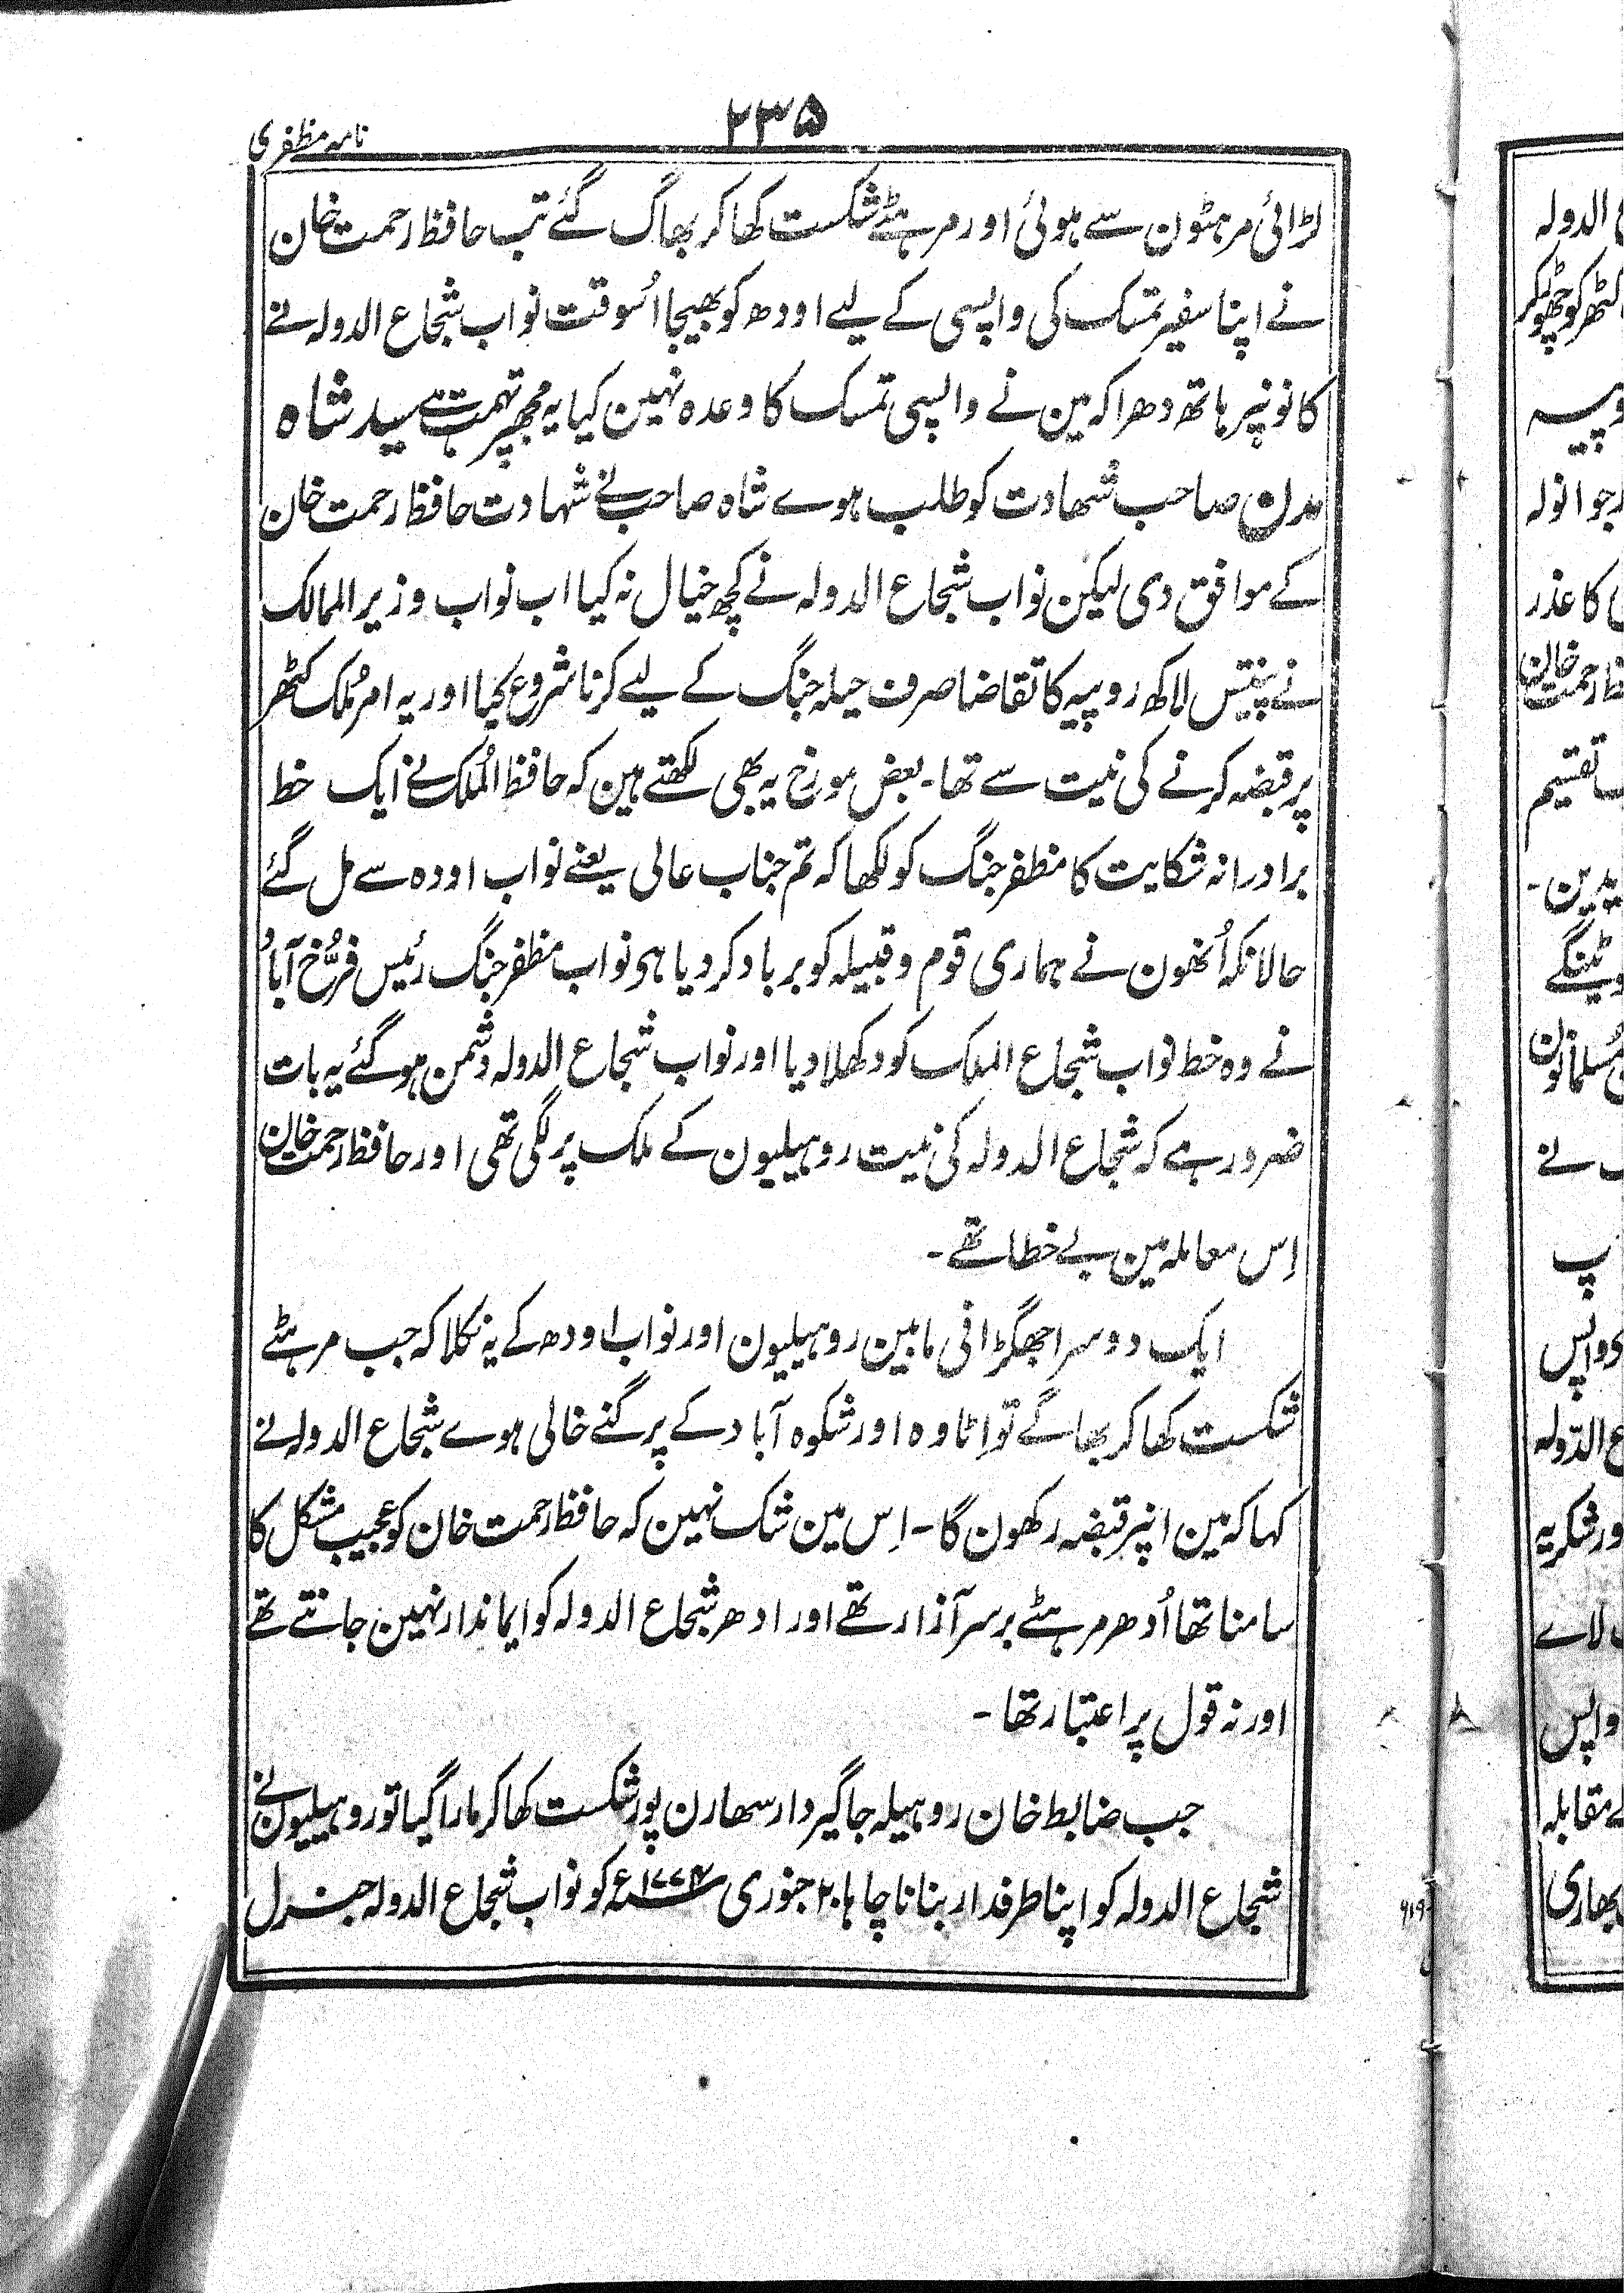 ۲۳۵
نامہ مظفری
لڑائی مرہٹون سے ہوئی اور مرہٹے شکست کھا کر بھاگ گئے تب حافظ رحمت خان
نے اپنا سفیر تمسک کی واپسی کے لیے اودھ کو بھیجا اُسوقت نواب شجاع الدولہ نے
کانونپر ہاتھ دھرا کہ مین نے واپسی تمسک کا وعدہ نہین کیا یہ مجھپر تہمت ہے سید شاہ
مدن صاحب شہادت کو طلب ہوے شاہ صاحب نے شہادت حافظ رحمت خان
کے موافق دی لیکن نواب شجاع الدولہ نے کچھ خیال نہ کیا اب نواب وزیر الممالک
نے پنتیس لاکھ روپیہ کا تقاضا صرف حیلہ جنگ کے لیے کرنا شروع کیا اور یہ امر مُلک کٹھر
پر قبضہ کرنے کی نیت سے تھا۔ بعض مورخ یہ بھی لکھتے ہین کہ حافظ الُملک نے ایک خط
برادرانہ شکایت کا مظفر جنگ کو لکھا کہ تم جناب عالی یعنے نواب اودہ سے مل گئے
حالانکہ اُنھون نے ہماری قوم و قبیلہ کو برباد کر دیا ہی نواب مظفر جنگ رئیس فرُّخ آباد
نے وہ خط نواب شجاع الملک کو دکھلا دیا اور نواب شجاع الدولہ دشمن ہو گئے یہ بات
ضرور ہے کہ شجاع الدولہ کی نیت روہیلیون کے ملک پر لگی تھی اور حافظ رحمت خان
اِس معاملہ مین بے خطا تھے۔
ایک دوسرا جھگڑا فی مابین روہیلیون اور نواب اودھ کے یہ نکلا کہ جب مرہٹے
شکست کھا کر بھاگے تو اِٹاوہ اور شکوہ آباد کے پرگنے خالی ہوے شجاع الدولہ نے
کہا کہ مین انپر قبضہ رکھون گا۔ اِس مین شک نہین کہ حافظ رحمت خان کو عجیب مشکل کا
سامنا تھا اُدھر مرہٹے برسر آزار تھے اور ادھر شجاع الدولہ کو ایماندار نہین جانتے تھے
اور نہ قول پر اعتبار تھا۔
جب ضابط خان روہیلہ جاگیردار سہارن پور شکست کھا کر مارا گیا تو روہیلیون نے
شجاع الدولہ کو اپنا طرفدار بنانا چاہا ۲۰ جنوری ۱۷۷۴ء کو نواب شجاع الدولہ جنرل
الدولہ
کٹھر کو چھوڑکر
روپیہ
جو انولہ
کا عذر
حافظ رحمت خان
تقسیم
مسلمانون
نے
واپس
شجاع الدّولہ
اور شکریہ
لاے
واپس
مقابلہ
بھاری